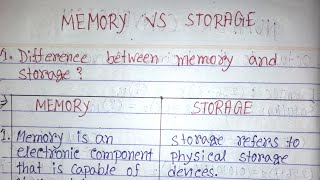 MEMORY VS STORAGE
1. Difference between memory and
storage?
→ MEMORY STORAGE
1. Memory is an storage refers to
electronic component physical storage
that is capable of devices.